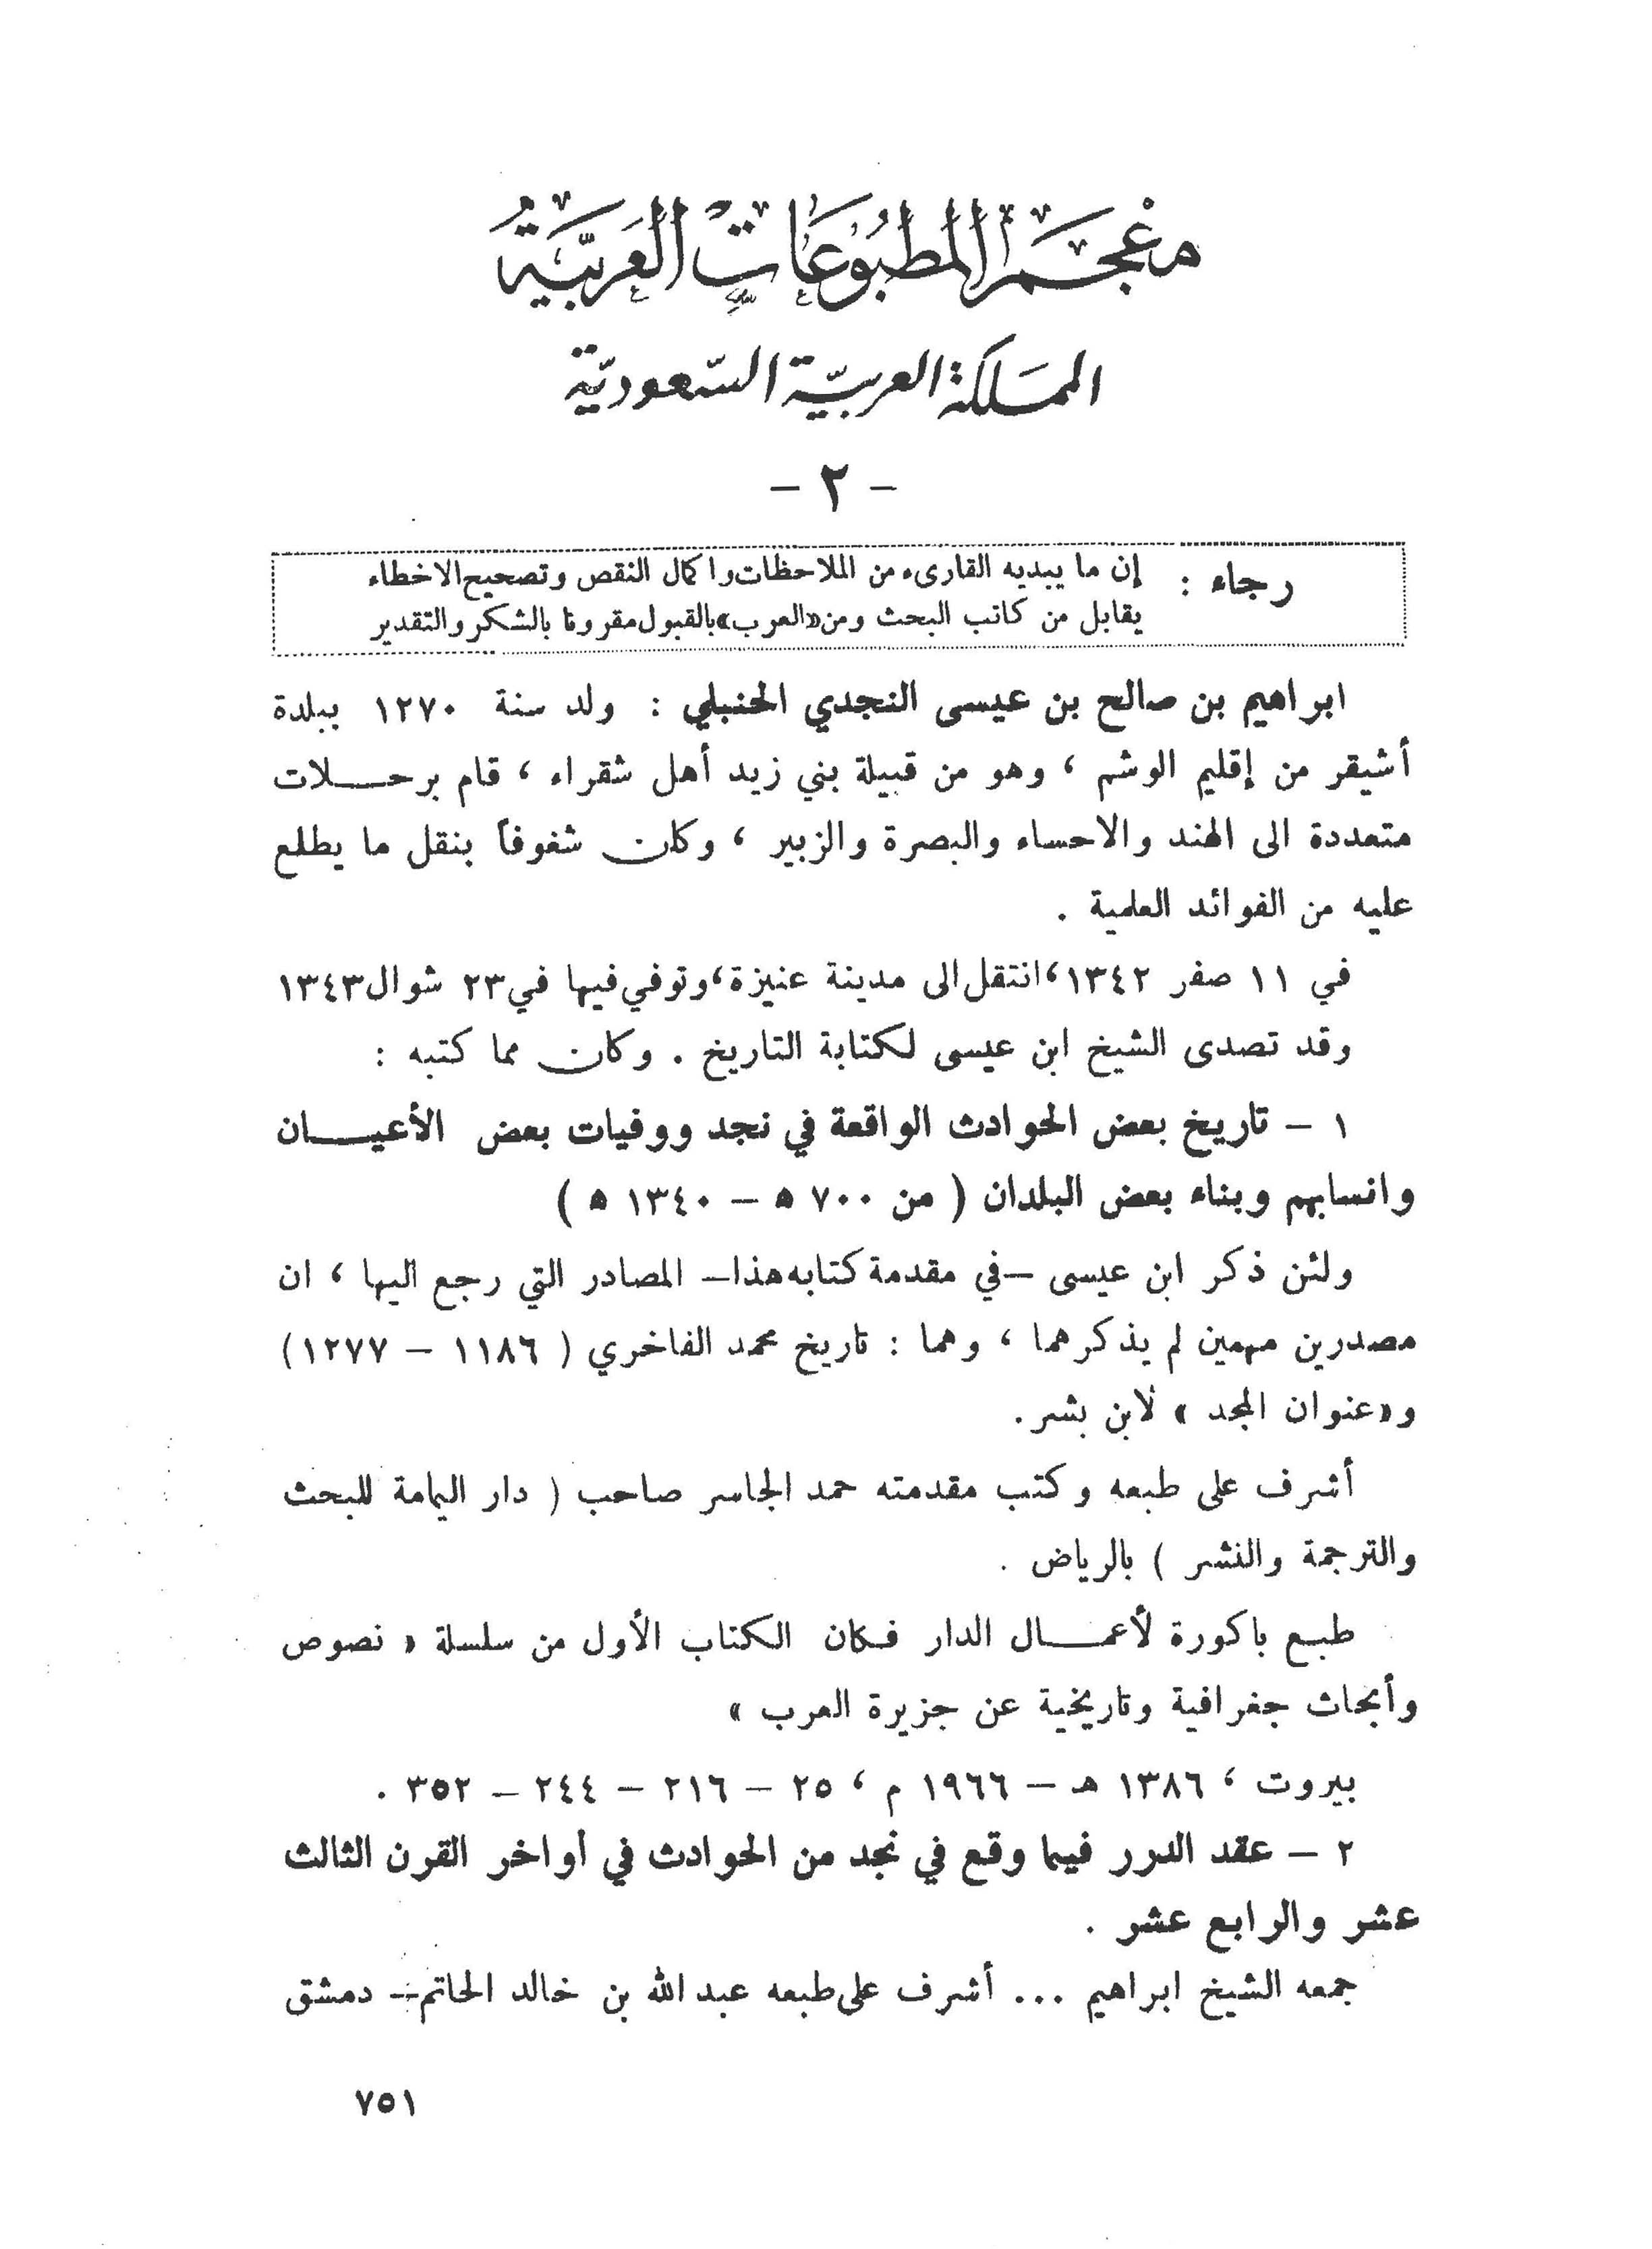 معجم المطبوعات العربية
المملكة العربية السعودية
- ٢ -
رجاء : إن ما يبديه القارىء من الملاحظات واكمال النقص وتصحيح الاخطاء
يقابل من كاتب البحث ومن «العرب» بالقبول مقرونا بالشكر والتقدير
ابراهيم بن صالح بن عيسى النجدي الحنبلي : ولد سنة ١٢٧٠ ببلدة
أشيقر من إقليم الوشم ، وهو من قبيلة بني زيد أهل شقراء ، قام برحلات
متعددة الى الهند والاحساء والبصرة والزبير ، وكان شغوفاً بنقل ما يطلع
عليه من الفوائد العلمية .
في ١١ صفر ١٣٤٢، انتقل الى مدينة عنيزة، وتوفي فيها في ٢٣ شوال ١٣٤٣
وقد تصدى الشيخ ابن عيسى لكتابة التاريخ . وكان مما كتبه :
١ - تاريخ بعض الحوادث الواقعة في نجد ووفيات بعض الأعيان
وانسابهم وبناء بعض البلدان ( من ٧٠٠ ه - ١٣٤٠ ه )
ولئن ذكر ابن عيسى - في مقدمة كتابه هذا - المصادر التي رجع اليها ، ان
مصدرين مهمين لم يذكرهما ، وهما : تاريخ محمد الفاخري ( ١١٨٦ - ١٢٧٧ )
و«عنوان المجد » لابن بشر.
أشرف على طبعه وكتب مقدمته حمد الجاسر صاحب ( دار اليمامة للبحث
والترجمة والنشر ) بالرياض .
طبع باكورة لأعمال الدار فكان الكتاب الأول من سلسلة « نصوص
وأبحاث جغرافية وتاريخية عن جزيرة العرب »
بيروت ، ١٣٨٦ هـ - ١٩٦٦ م ، ٢٥ - ٢١٦ - ٢٤٤ - ٣٥٢ .
٢ - عقد الدرر فيما وقع في نجد من الحوادث في أواخر القرن الثالث
عشر والرابع عشر .
جمعه الشيخ ابراهيم ... أشرف على طبعه عبد الله بن خالد الحاتم - دمشق
٧٥١